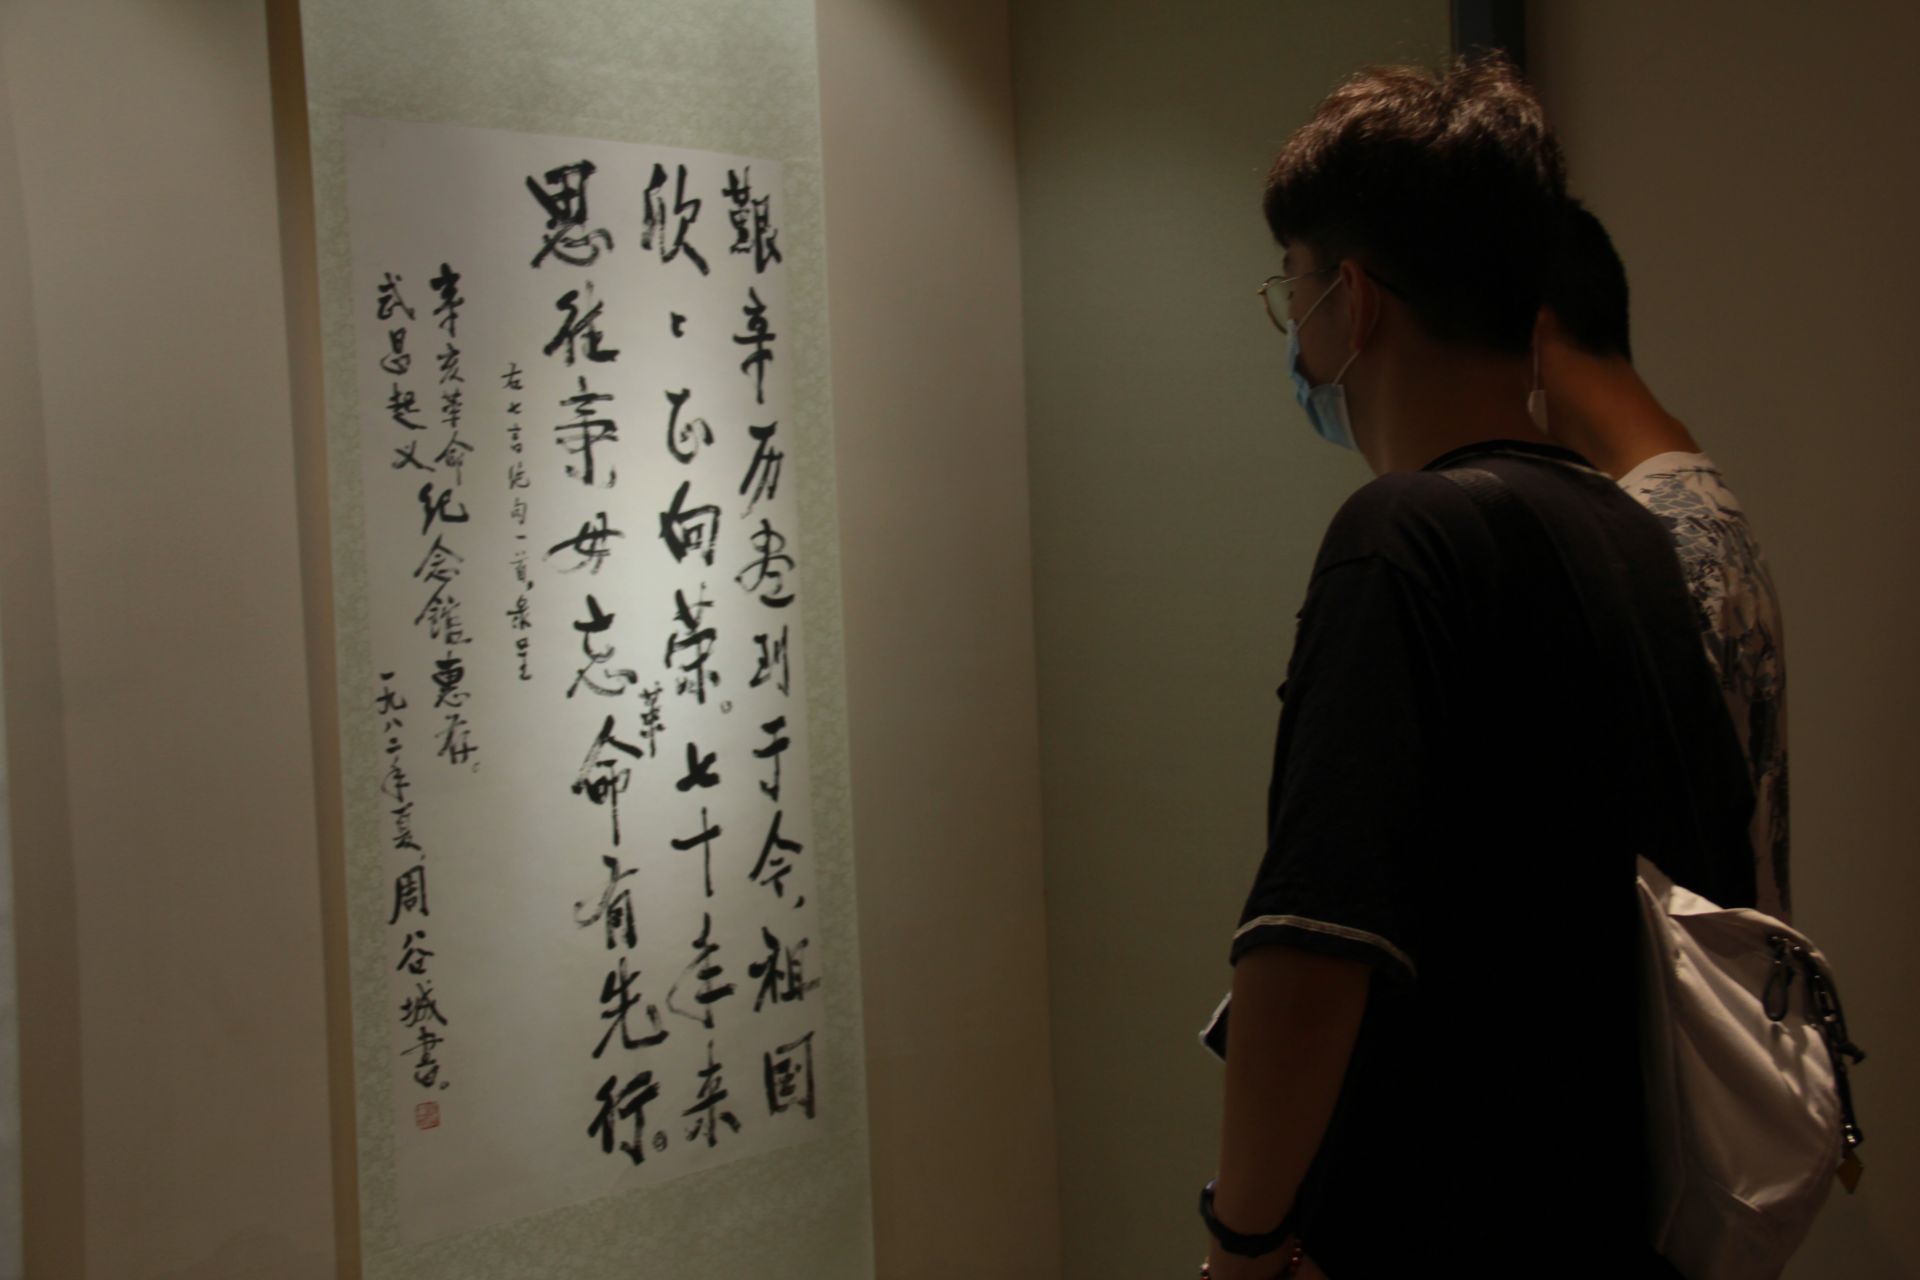 艱辛历尽到于今，祖国
欣〻正向荣。七十年来
思往事，毋忘革命有先行。
右七言绝句一首，录呈
辛亥革命
武昌起义纪念館惠存。
一九八二年夏，周谷城書。